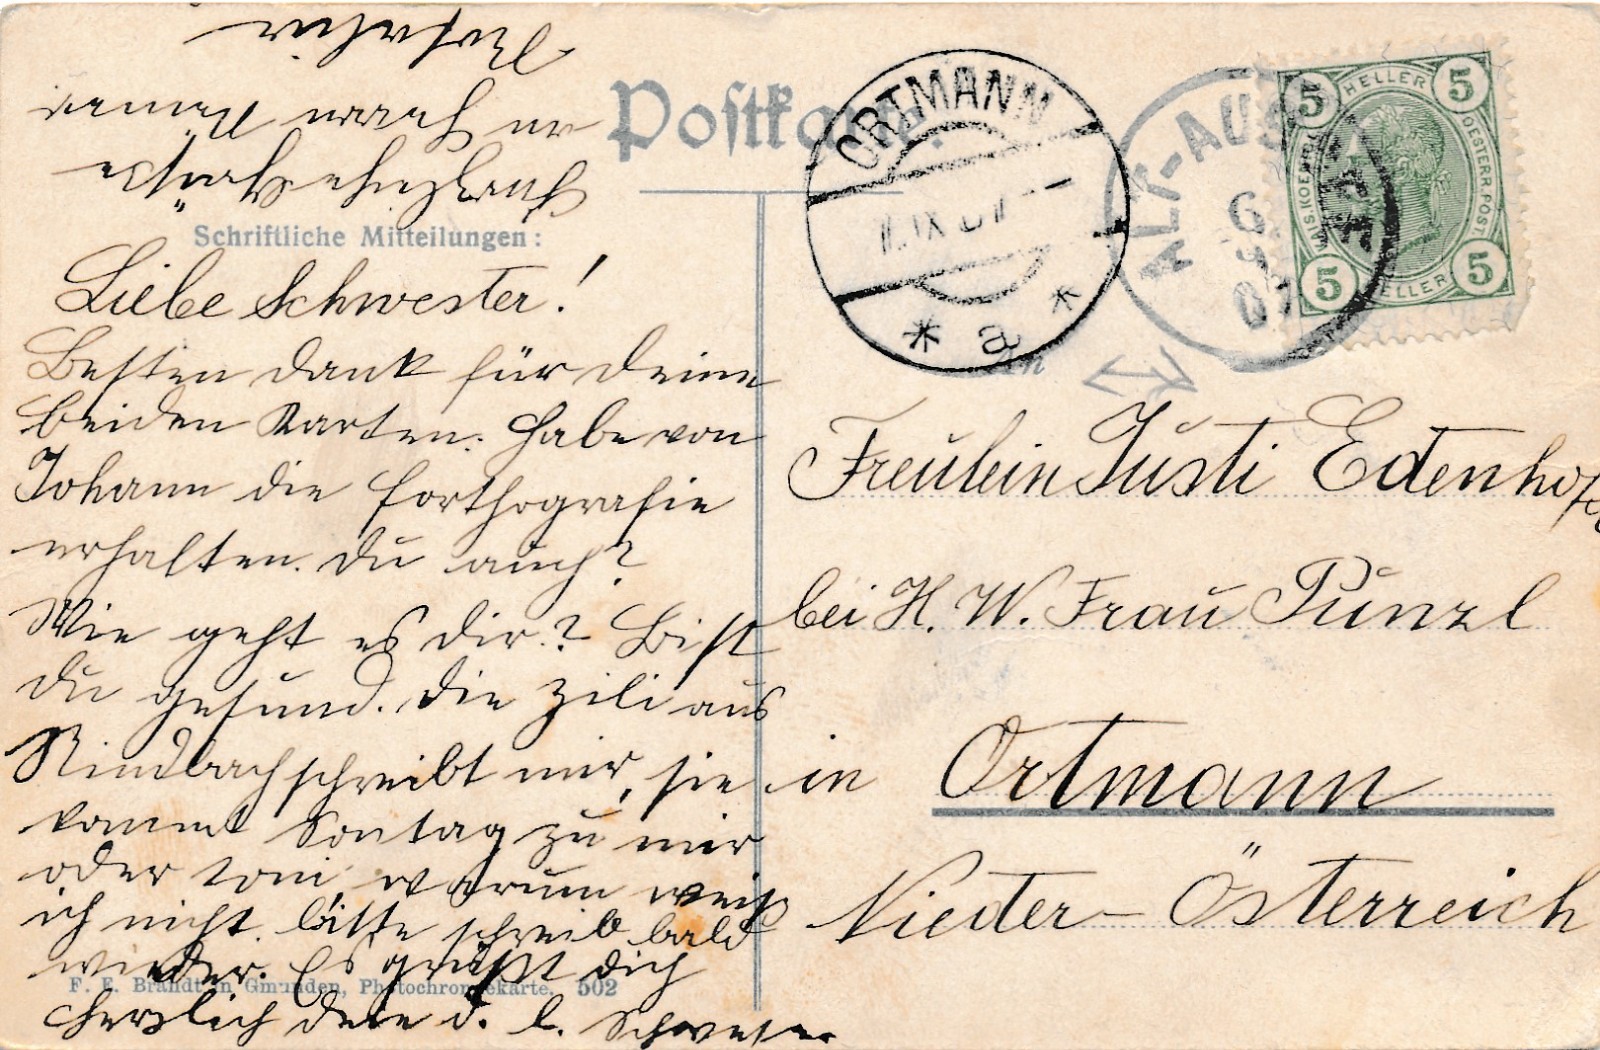 Postkarte.
Schriftliche Mitteilungen:
Liebe Schwester!
Besten Dank für deine
beiden Karten. Habe von
Johann die forthografie
erhalten. Du auch?
Wie geht es dir? Bist
du gesund. Die Zili aus
Rindbach schreibt mir, sie
kommt Sontag zu mir
oder Toni, warum weiß
ich nicht. bitte schreib bald
wieder. Es grüßt dich
herzlich deine d. l. Schwester
Herzliche Grüße
an Frau
F. E. Brandt in Gmunden, Photochromiekarte. 502
ORTMANN
IX 07
* a *
ALT-AUS
6
9
07
5 HELLER 5
KAIS. KOENIGL.
OESTERR. POST
5 HELLER 5
An
Freulein Justi Edenhofer
bei H. W. Frau Punzl
in Ortmann
Nieder-Österreich